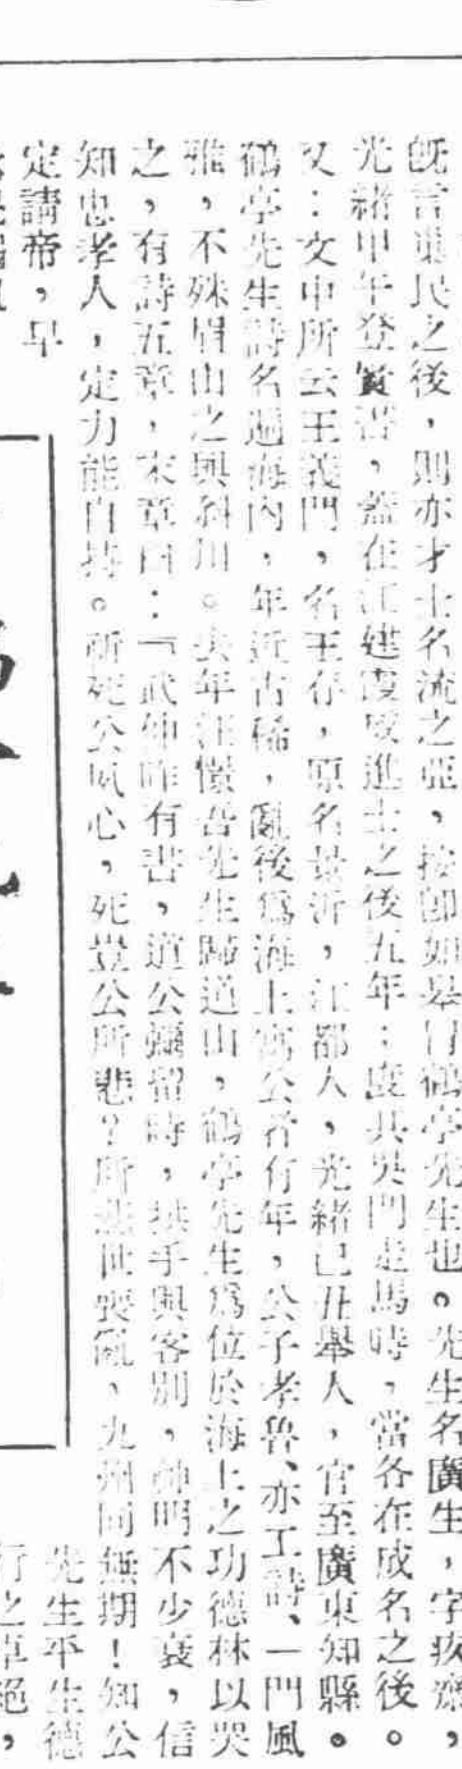 既言巢民之後，則亦才士名流之亞，按卽如皋冒鶴亭先生也。先生名廣生，字疚齋，
光緒甲午登賢書，蓋在江建霞成進士之後五年；度共吳門走馬時，當各在成名之後。
又：文中所云王義門，名王存，原名景沂，江都人，光緒己丑舉人，官至廣東知縣。
鶴亭先生詩名遍海內，年近古稀，亂後爲海上寓公者有年，公子孝魯、亦工詩、一門風
雅，不殊眉山之與斜川。去年汪憬吾先生歸道山，鶴亭先生爲位於海上之功德林以哭
之，有詩五章，末章曰：『武仲昨有書，道公彌留時，拱手與客別，神明不少衰，信
知忠孝人，定力能自持。所死公夙心，死豈公所悲？所悲世喪亂，九州同無期！知公
定請帝，早
先生平生德
行之卓絕，